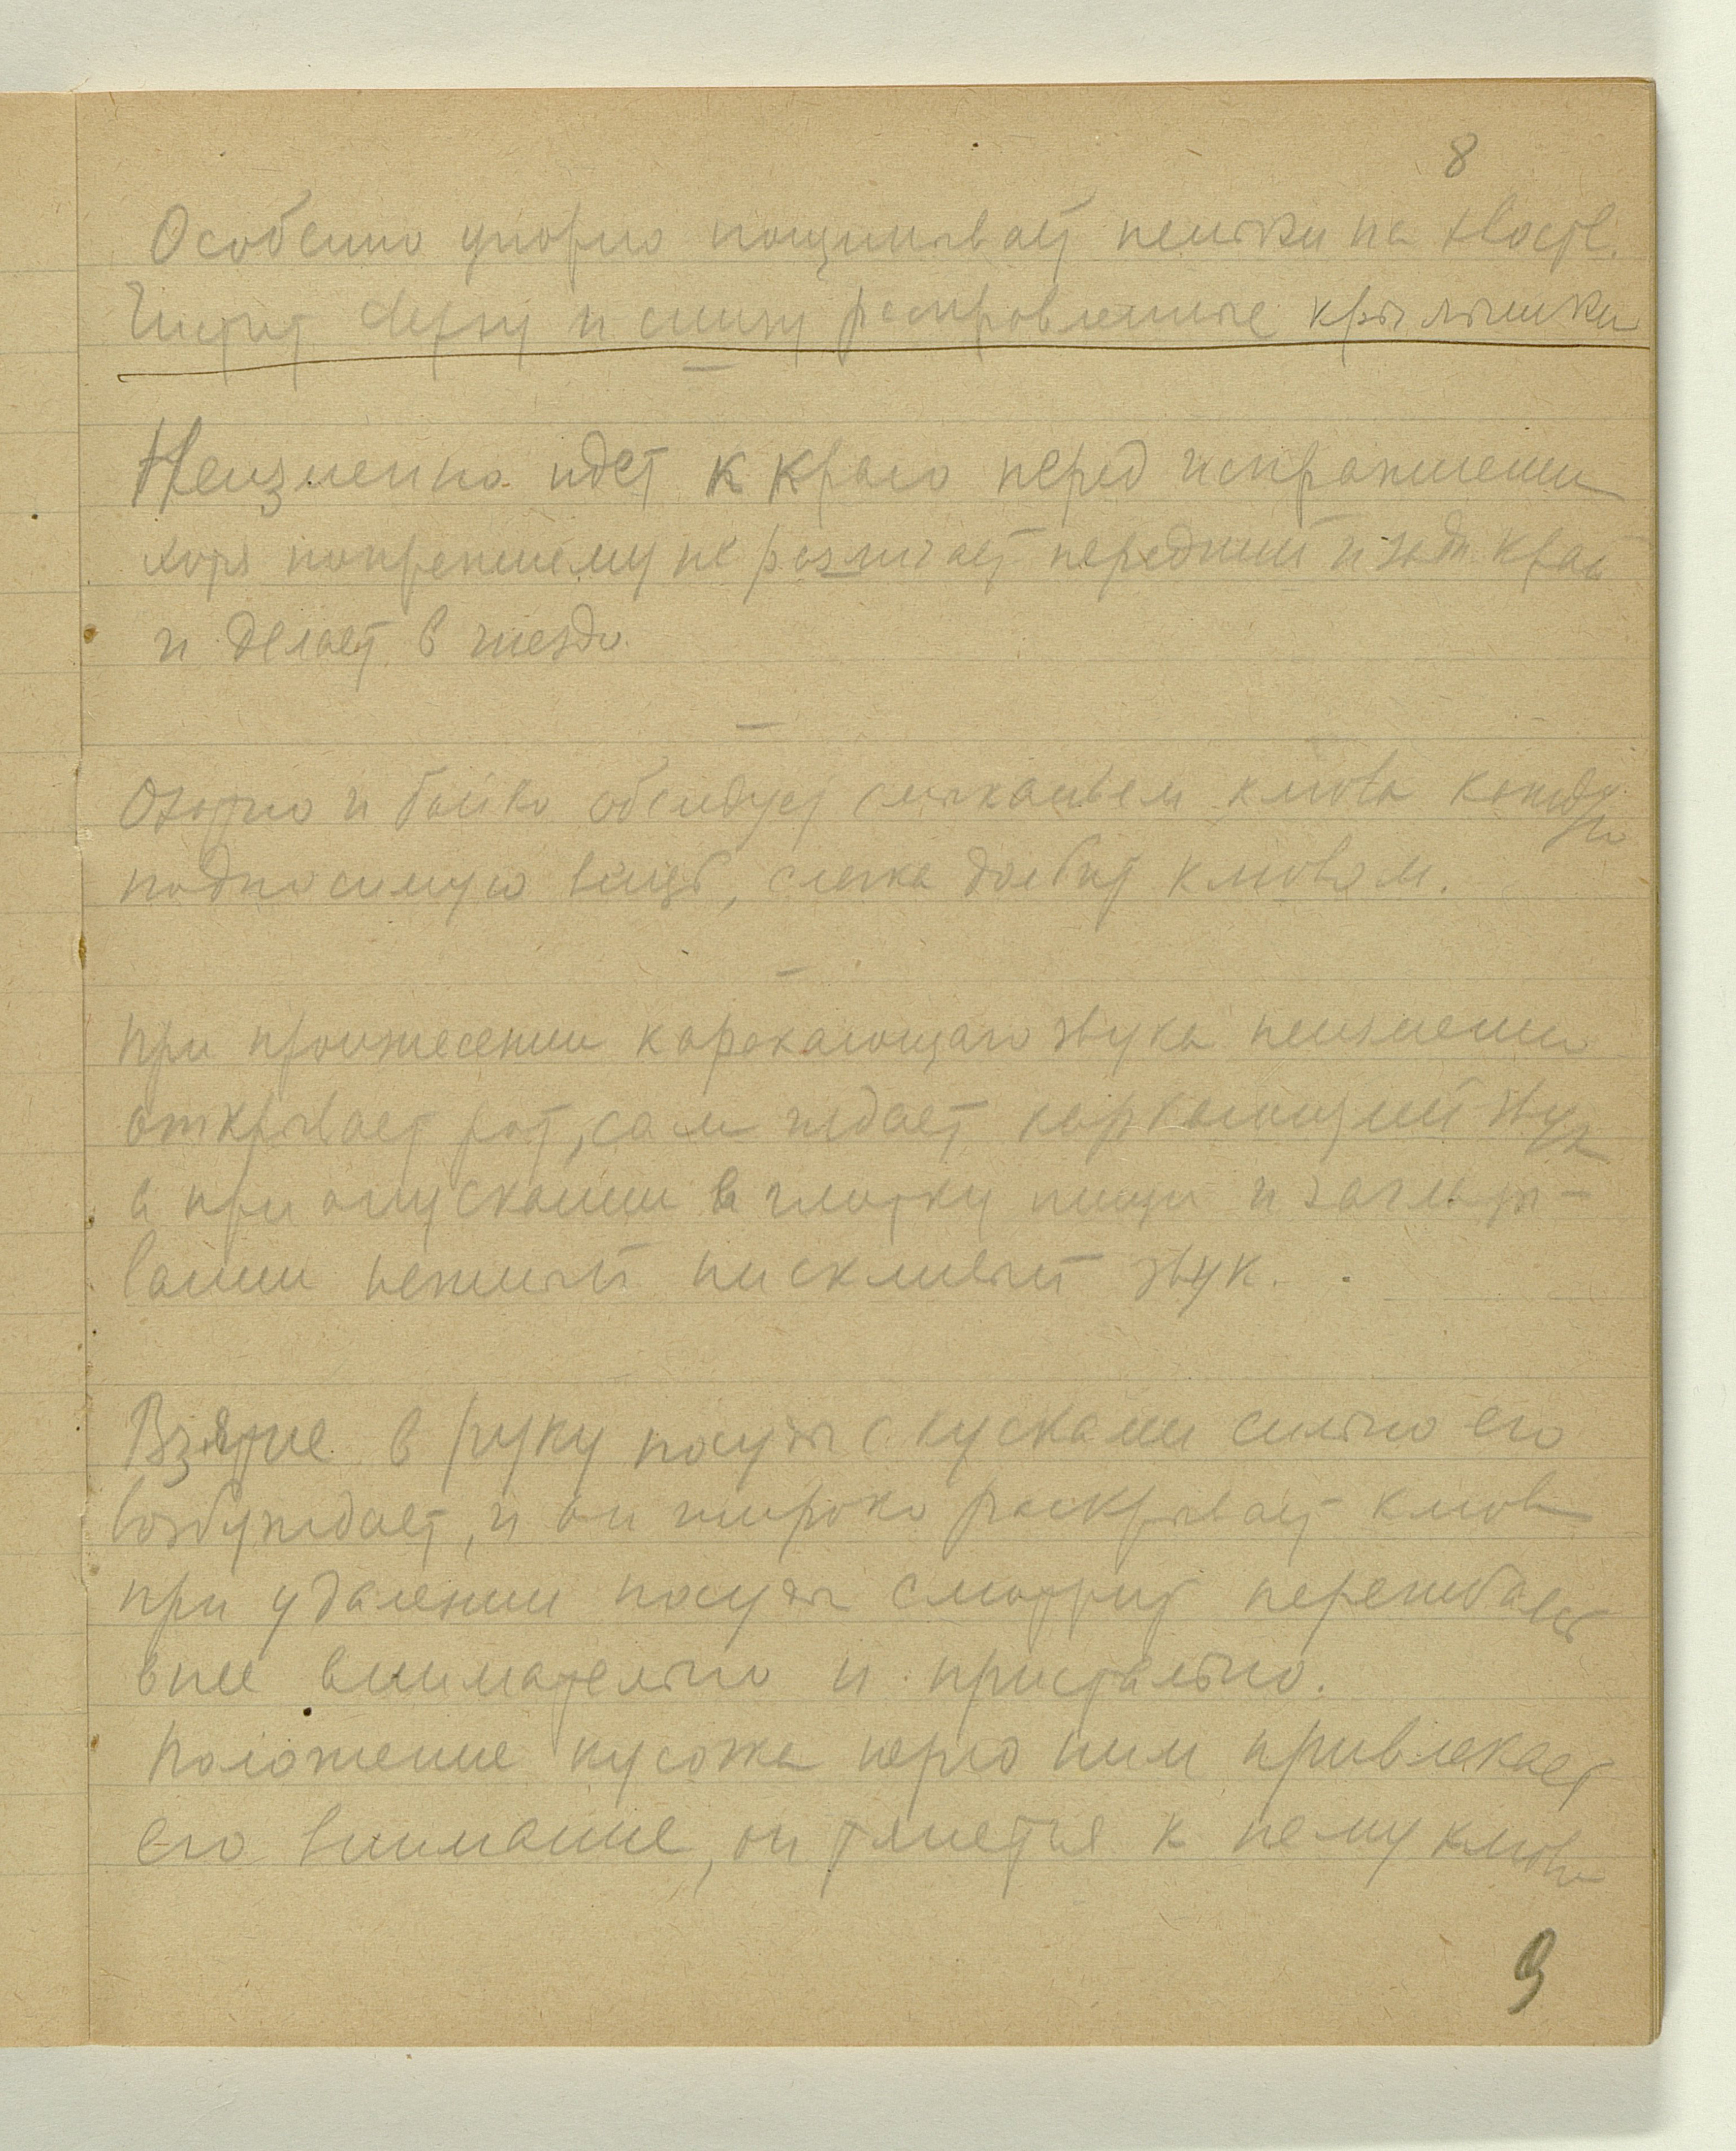 8
Особенно упорно пощипывает пеньки на хвосте.
Чистит сверху и снизу расправленные крылышки
Неизменно идет к краю перед испражнением
хотя попрежнему не различает передний и задн. край
и делает в гнездо.
и бойко обследует смыканьем клюва каждую
подносимую вещь, слегка долбит клювом.
При произнесении каркающего звука неизменно
открывает рот, сам издает каркающий звук
а при опускании в глотку пищи и заглаты-
вании нежный пискливый звук.
Взятие в руку посуды с кусками сильно его
возбуждает, и он широко раскрывает клюв
при удалении посуды смотрит
в нее внимательно и пристально.
Положение кусочка перед ним привлекает
его внимание, он тянется к нему клювом
9